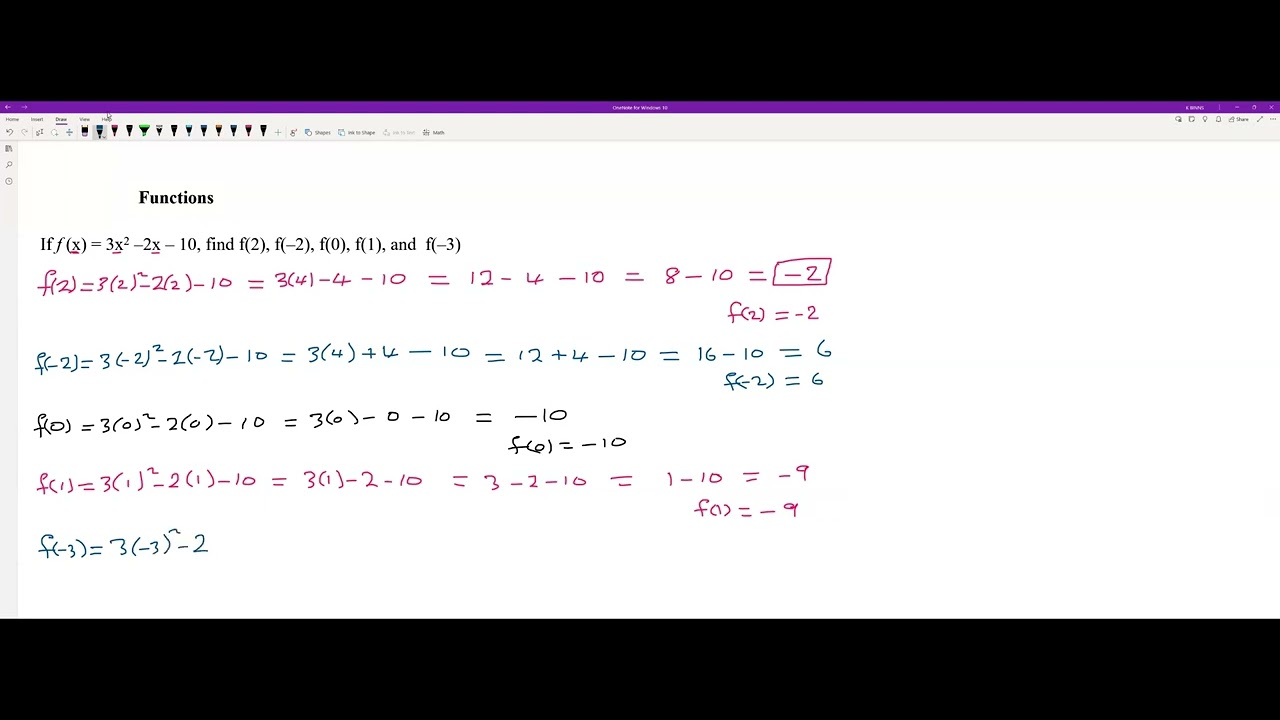 OneNote for Windows 10
E BINNS
Home Insert Draw View Help
Shapes Ink to Shape Ink to Text Math
Share
Functions
If f (x) = 3x² –2x – 10, find f(2), f(–2), f(0), f(1), and f(–3)
f(2) = 3(2)² - 2(2) - 10 = 3(4) - 4 - 10 = 12 - 4 - 10 = 8 - 10 = -2
f(2) = -2
f(-2) = 3(-2)² - 2(-2) - 10 = 3(4) + 4 - 10 = 12 + 4 - 10 = 16 - 10 = 6
f(-2) = 6
f(0) = 3(0)² - 2(0) - 10 = 3(0) - 0 - 10 = -10
f(0) = -10
f(1) = 3(1)² - 2(1) - 10 = 3(1) - 2 - 10 = 3 - 2 - 10 = 1 - 10 = -9
f(1) = -9
f(-3) = 3(-3)² - 2